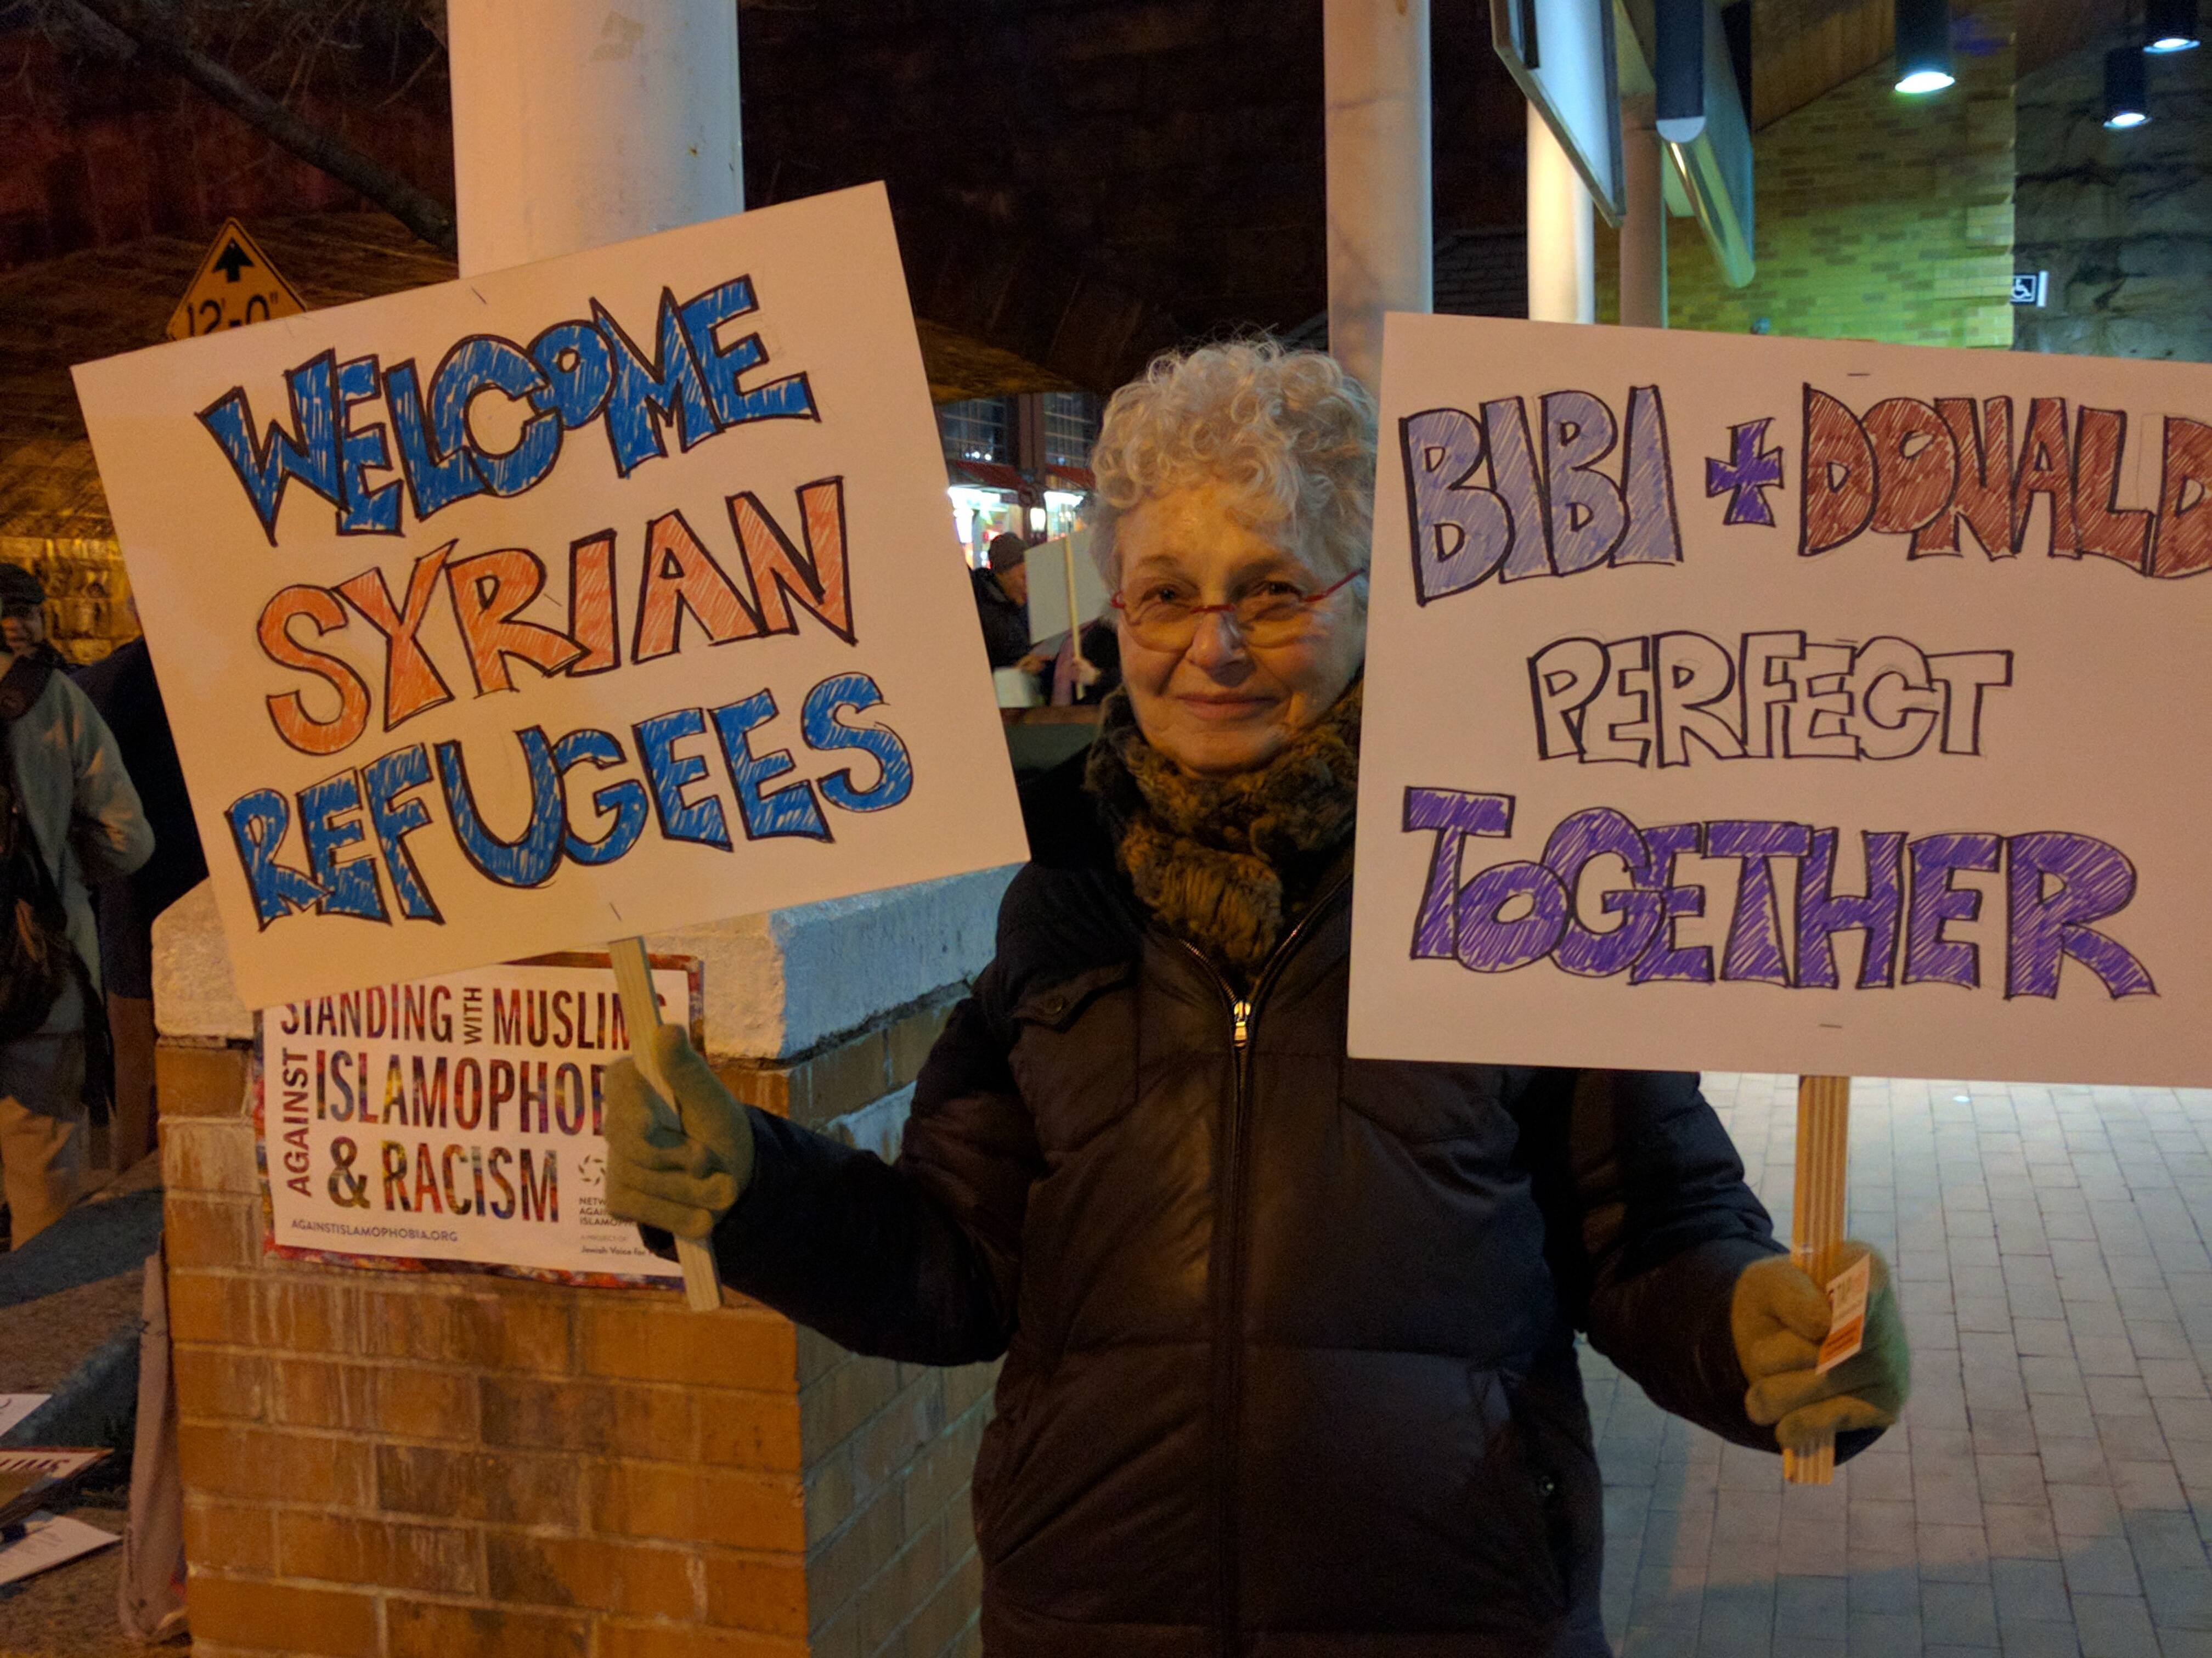 12'-0"
WELCOME
SYRIAN
REFUGEES
BIBI + DONALD
PERFECT
TOGETHER
STANDING WITH MUSLIM
AGAINST ISLAMOPHOB
& RACISM
AGAINSTISLAMOPHOBIA.ORG
A PROJECT OF
Jewish Voice for